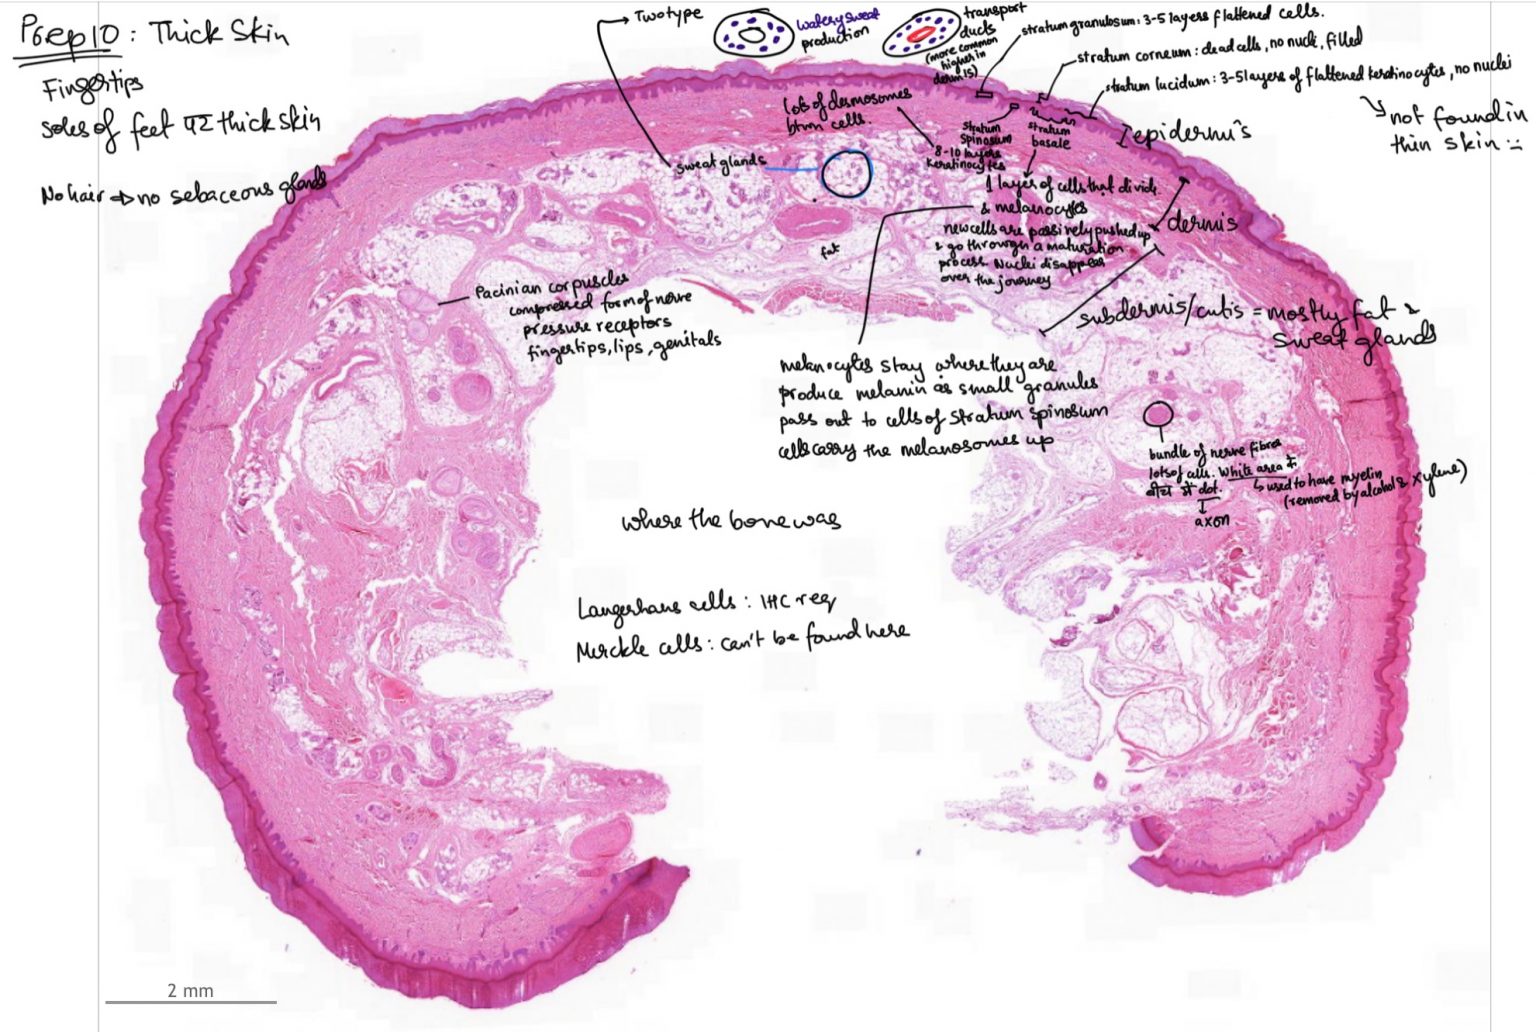 Prep 10 : Thick Skin
Fingertips
soles of feet thick skin
No hair ⇒ no sebaceous glands
Two type
watery sweat
production
transport
ducts
(more common
higher in
dermis)
stratum granulosum: 3-5 layers flattened cells.
stratum corneum: dead cells, no nuclei, filled
stratum lucidum: 3-5 layers of flattened keratinocytes, no nuclei
↘ not found in
thin skin
lots of desmosomes
btwn cells.
stratum
spinosum
8-10 layers
keratinocytes
stratum
basale
epidermis
sweat glands
1 layer of cells that divide
& melanocytes
new cells are passively pushed up
& go through a maturation
process. Nuclei disappear
over the journey
dermis
fat
Pacinian corpuscles
compressed form of nerve
pressure receptors
fingertips, lips, genitals
subdermis/cutis = mostly fat &
sweat glands
melanocytes stay where they are
produce melanin as small granules
pass out to cells of stratum spinosum
cells carry the melanosomes up
bundle of nerve fibres
lots of cells. White area
dot.
↳ used to have myelin
(removed by alcohol & xylene)
axon
where the bone was
Langerhans cells : IHC req
Merckle cells : can't be found here
2 mm